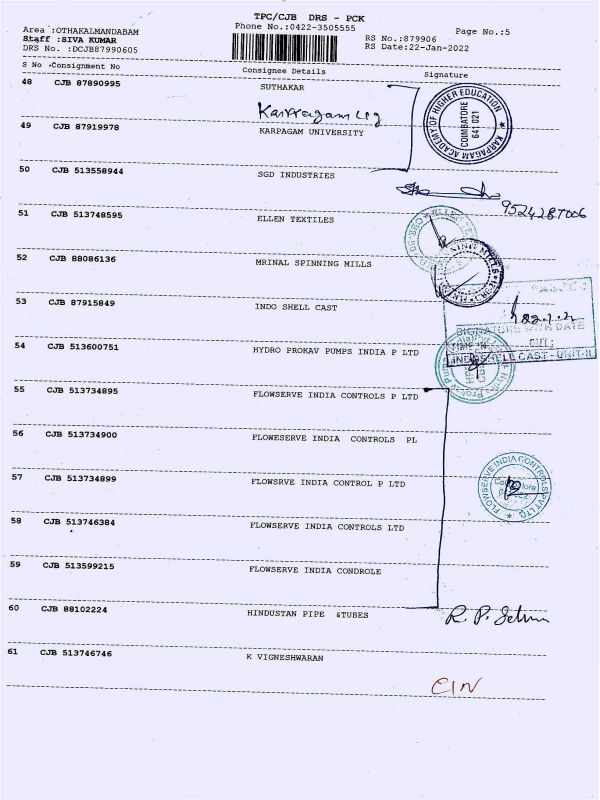 TPC/CJB DRS - PCK
Area :OTHAKALMANDABAM Phone No.:0422-3505555 Page No.:5
Staff :SIVA KUMAR RS No.:879906
DRS No. :DCJB87990605 RS Date:22-Jan-2022
S No Consignment No Consignee Details Signature
48 CJB 87890995 SUTHAKAR
KARPAGAM ACADEMY OF HIGHER EDUCATION
COIMBATORE
641 021
49 CJB 87919978 KARPAGAM UNIVERSITY
50 CJB 513558944 SGD INDUSTRIES
51 CJB 513748595 ELLEN TEXTILES
52 CJB 88086136 MRINAL SPINNING MILLS
53 CJB 87915849 INDO SHELL CAST
SIGNATURE WITH DATE
TIME IN OUT:
INDO SHELL CAST - UNIT-II
54 CJB 513600751 HYDRO PROKAV PUMPS INDIA P LTD
55 CJB 513734895 FLOWSERVE INDIA CONTROLS P LTD
56 CJB 513734900 FLOWESERVE INDIA CONTROLS PL
57 CJB 513734899 FLOWSRVE INDIA CONTROL P LTD
FLOWSERVE INDIA CONTROLS PVT LTD
58 CJB 513746384 FLOWSERVE INDIA CONTROLS LTD
59 CJB 513599215 FLOWSERVE INDIA CONDROLE
60 CJB 88102224 HINDUSTAN PIPE &TUBES
61 CJB 513746746 K VIGNESHWARAN